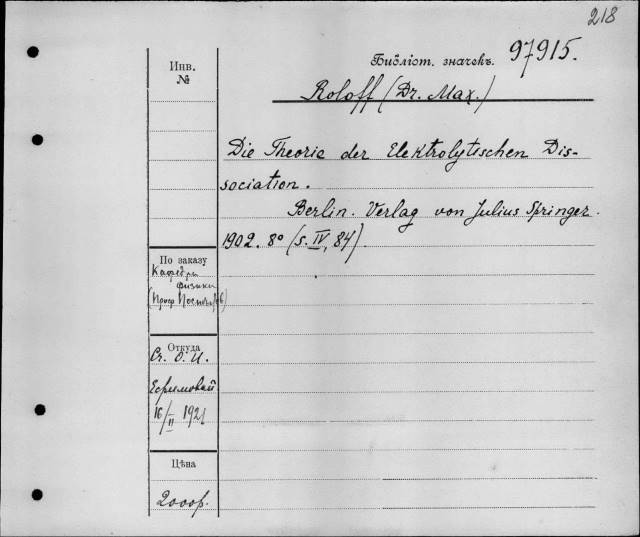 218
Инв.
№
Библіот. значекъ. 97915.
Roloff (Dr. Max.)
Die Theorie der Elektrolytischen Dis-
sociation.
Berlin. Verlag von Julius Springer.
1902. 8° (S. IV, 84).
По заказу
Кафедры
физики
(Проф.
Откуда
От О. И.
Ефимовой
16/II 1921
Цѣна
2000р.